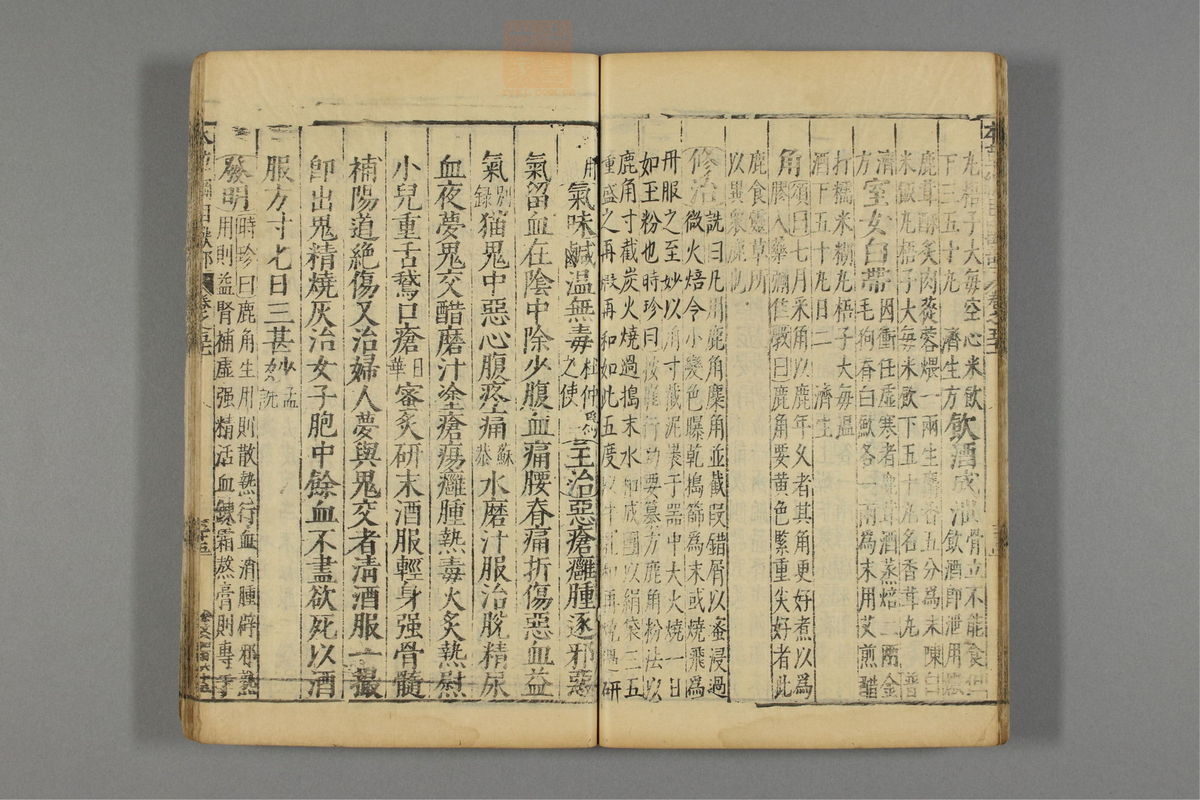 丸梧子大每空心米飲
下三五十丸 濟生方 飲酒成泄骨立不能食但飲酒即泄用嫩
鹿茸酥炙肉蓯蓉煨一兩生麝香五分為末陳白
米飯丸梧子大每米飲下五十丸名香茸丸 普
濟方 室女白帶因衝任虛寒者鹿茸酒蒸焙二兩金
毛狗脊白蘞各一兩為末用艾煎醋
打糯米糊丸梧子大每溫
酒下五十丸日二 濟生
角頌曰七月采角以鹿年久者其角更好煮以為
膠入藥彌佳斅曰鹿角要黃色緊重尖好者此
鹿食靈草所
以異衆鹿也
修治詵曰凡用鹿角麋角並截段錯屑以蜜浸過
微火焙令小變色曝乾搗篩為末或燒飛為
丹服之至妙以角寸截泥裹于器中大火燒一日
如玉粉也時珍曰按崔行功纂要方鹿角粉法以
鹿角寸截炭火燒過搗末水和成團以絹袋三五
重盛之再煅再和如此五度以牛乳和再燒過研
用 氣味鹹溫無毒杜仲為之使 主治惡瘡癰腫逐邪惡
氣留血在陰中除少腹血痛腰脊痛折傷惡血益
氣別錄猫鬼中惡心腹疼痛蘇恭水磨汁服治脫精尿
血夜夢鬼交醋磨汁塗瘡瘍癰腫熱毒火炙熱熨
小兒重舌鵞口瘡日華蜜炙研末酒服輕身强骨髓
補陽道絶傷又治婦人夢與鬼交者淸酒服一撮
卽出鬼精燒灰治女子胞中餘血不盡欲死以酒
服方寸七日三甚妙孟詵
發明時珍曰鹿角生用則散熱行血消腫辟邪熟
用則益腎補虛强精活血鍊霜熬膏則專于